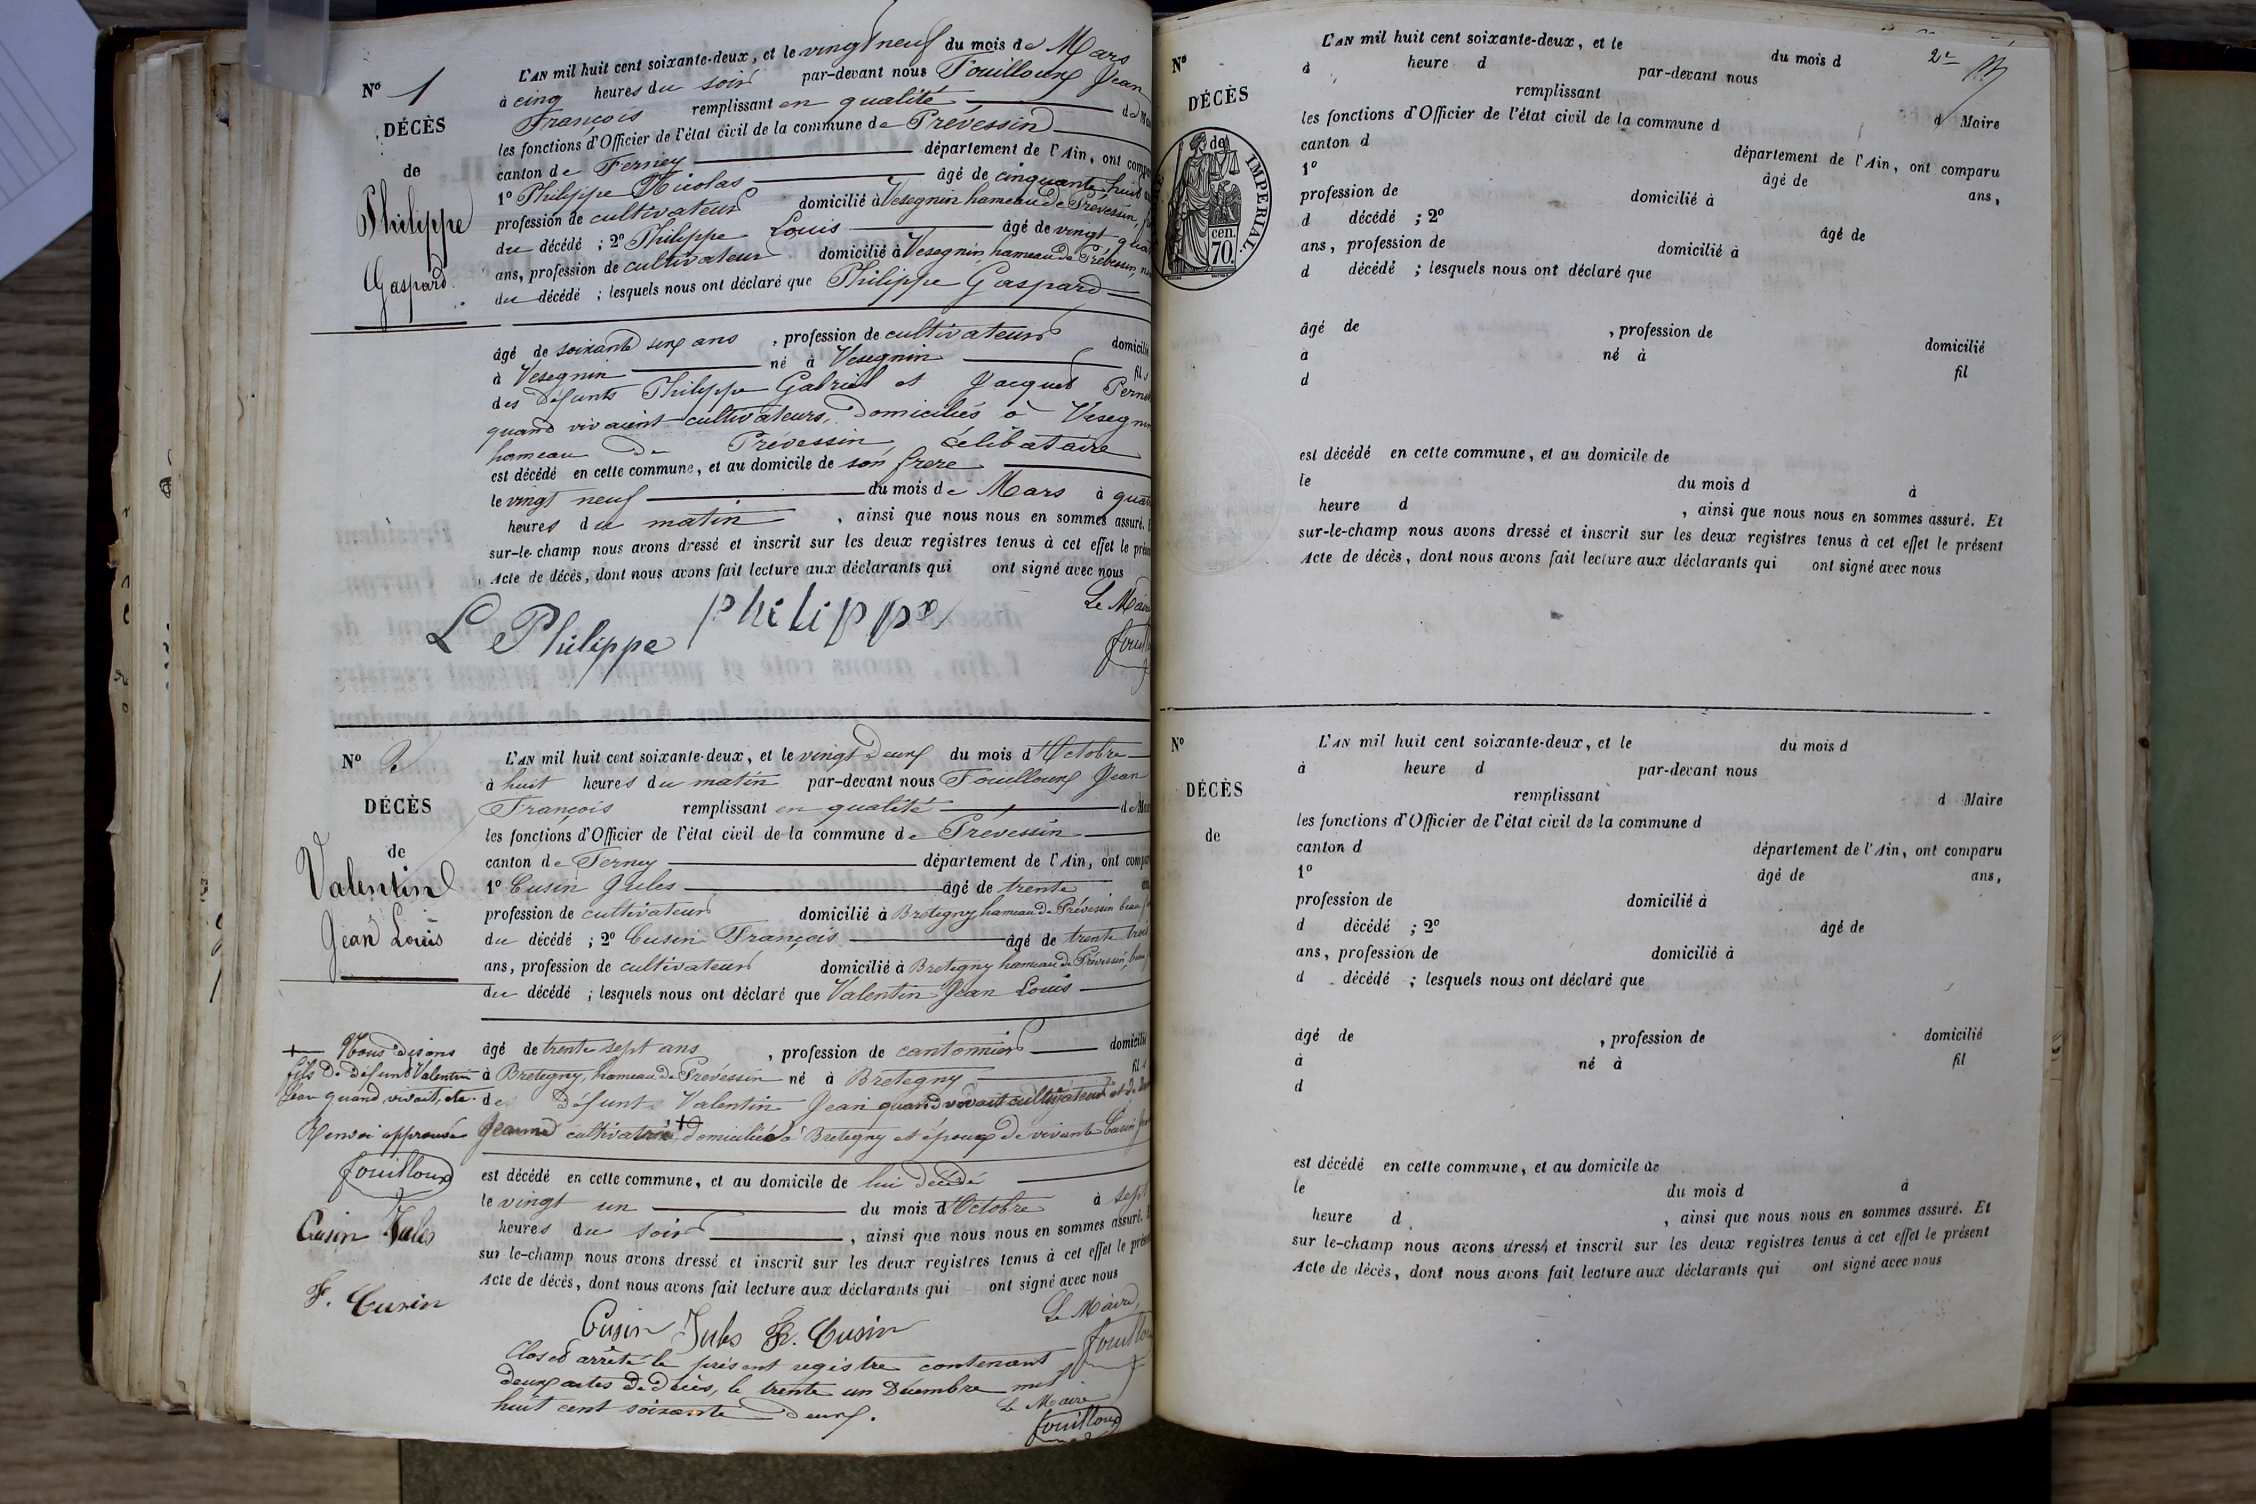 L'AN mil huit cent soixante-deux, et le vingt neuf du mois de Mars
N° 1
à cinq heures du soir par-devant nous Fouilloux Jean
François remplissant en qualité de
DÉCÈS
les fonctions d'Officier de l'état civil de la commune de Prévessin
canton de Ferney département de l'Ain, ont
de
1° Philippe Nicolas âgé de cinquante huit
Philippe
profession de cultivateur domicilié à Vesegnin hameau de Prévessin,
du décédé ; 2° Philippe Louis âgé de vingt
ans, profession de cultivateur domicilié à Vesegnin hameau de Prévessin,
Gaspard
du décédé ; lesquels nous ont déclaré que Philippe Gaspard
âgé de soixante six ans , profession de cultivateur
à Vesegnin né à Vesegnin fils
des défunts Philippe Gabriel et Jacquet
quand vivaient cultivateurs, domiciliés à
hameau de Prévessin, célibataire
est décédé en cette commune, et au domicile de son frere
le vingt neuf du mois de Mars à
heures du matin , ainsi que nous nous en sommes assuré.
sur-le-champ nous avons dressé et inscrit sur les deux registres tenus à cet effet le
Acte de décès, dont nous avons fait lecture aux déclarants qui ont signé avec nous
L Philippe philippe
Le
N° 2
L'AN mil huit cent soixante-deux, et le vingt deux du mois d'Octobre
à huit heures du matin par-devant nous Fouilloux Jean
DÉCÈS
François remplissant en qualité de
les fonctions d'Officier de l'état civil de la commune de Prévessin
de
canton de Ferney département de l'Ain, ont
Valentin
1° Cusin Jules âgé de trente
profession de cultivateur domicilié à Bretegny hameau de Prévessin beau
Jean Louis
du décédé ; 2° Cusin François âgé de trente trois
ans, profession de cultivateur domicilié à Bretegny hameau de Prévessin,
du décédé ; lesquels nous ont déclaré que Valentin Jean Louis
Nous disons
fils de défunt Valentin
Jean quand vivait, etc.
Renvoi approuvé
Fouilloux
Cusin Jules
F. Cusin
âgé de trente sept ans , profession de cantonnier
à Bretegny, hameau de Prévessin né à Bretegny
de défunt Valentin Jean quand vivait cultivateur et de
Jeanne domiciliés à Bretegny et époux de vivante Cusin
est décédé en cette commune, et au domicile de lui décédé
le vingt un du mois d'Octobre à sept
heures du soir , ainsi que nous nous en sommes assuré.
sur le-champ nous avons dressé et inscrit sur les deux registres tenus à cet effet le
Acte de décès, dont nous avons fait lecture aux déclarants qui ont signé avec nous
Cusin Jules F. Cusin
Le Maire,
Clos et arrêté le présent registre contenant
deux actes de décès, le trente un Décembre mil
huit cent soixante deux.
Le Maire
Fouilloux
2e
N°
L'AN mil huit cent soixante-deux, et le du mois d
à heure d par-devant nous
DÉCÈS
remplissant d Maire
les fonctions d'Officier de l'état civil de la commune d
canton d département de l'Ain, ont comparu
1° âgé de ans,
profession de domicilié à
d décédé ; 2° âgé de
ans, profession de domicilié à
d décédé ; lesquels nous ont déclaré que
de
IMPERIAL.
cen.
70.
âgé de , profession de domicilié
à né à fil
d
est décédé en cette commune, et au domicile de
le du mois d à
heure d , ainsi que nous nous en sommes assuré. Et
sur-le-champ nous avons dressé et inscrit sur les deux registres tenus à cet effet le présent
Acte de décès, dont nous avons fait lecture aux déclarants qui ont signé avec nous
N°
L'AN mil huit cent soixante-deux, et le du mois d
à heure d par-devant nous
DÉCÈS
remplissant d Maire
les fonctions d'Officier de l'état civil de la commune d
de
canton d département de l'Ain, ont comparu
1° âgé de ans,
profession de domicilié à
d décédé ; 2° âgé de
ans, profession de domicilié à
d décédé ; lesquels nous ont déclaré que
âgé de , profession de domicilié
à né à fil
d
est décédé en cette commune, et au domicile de
le du mois d à
heure d , ainsi que nous nous en sommes assuré. Et
sur le-champ nous avons dressé et inscrit sur les deux registres tenus à cet effet le présent
Acte de décès, dont nous avons fait lecture aux déclarants qui ont signé avec nous